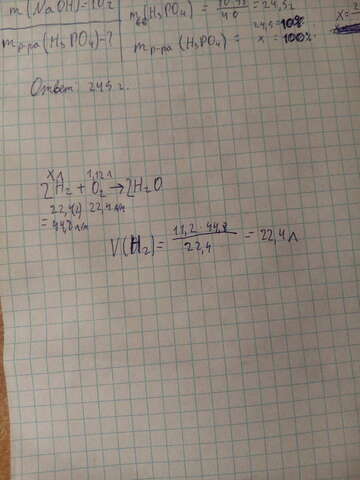 m(NaOH)=10г
m (H₃PO₄) = 10·98/40 = 24,5 г
mр-ра(H₃PO₄)-?
24,5 = 10%
mр-ра (H₃PO₄) = x = 100%
Ответ: 245 г.
xл 1,12л
2H₂ + O₂ → 2H₂O
22,4(2) 22,4 л/м
= 44,8 л/м
V(H₂) = 11,2 · 44,8 / 22,4 = 22,4 л